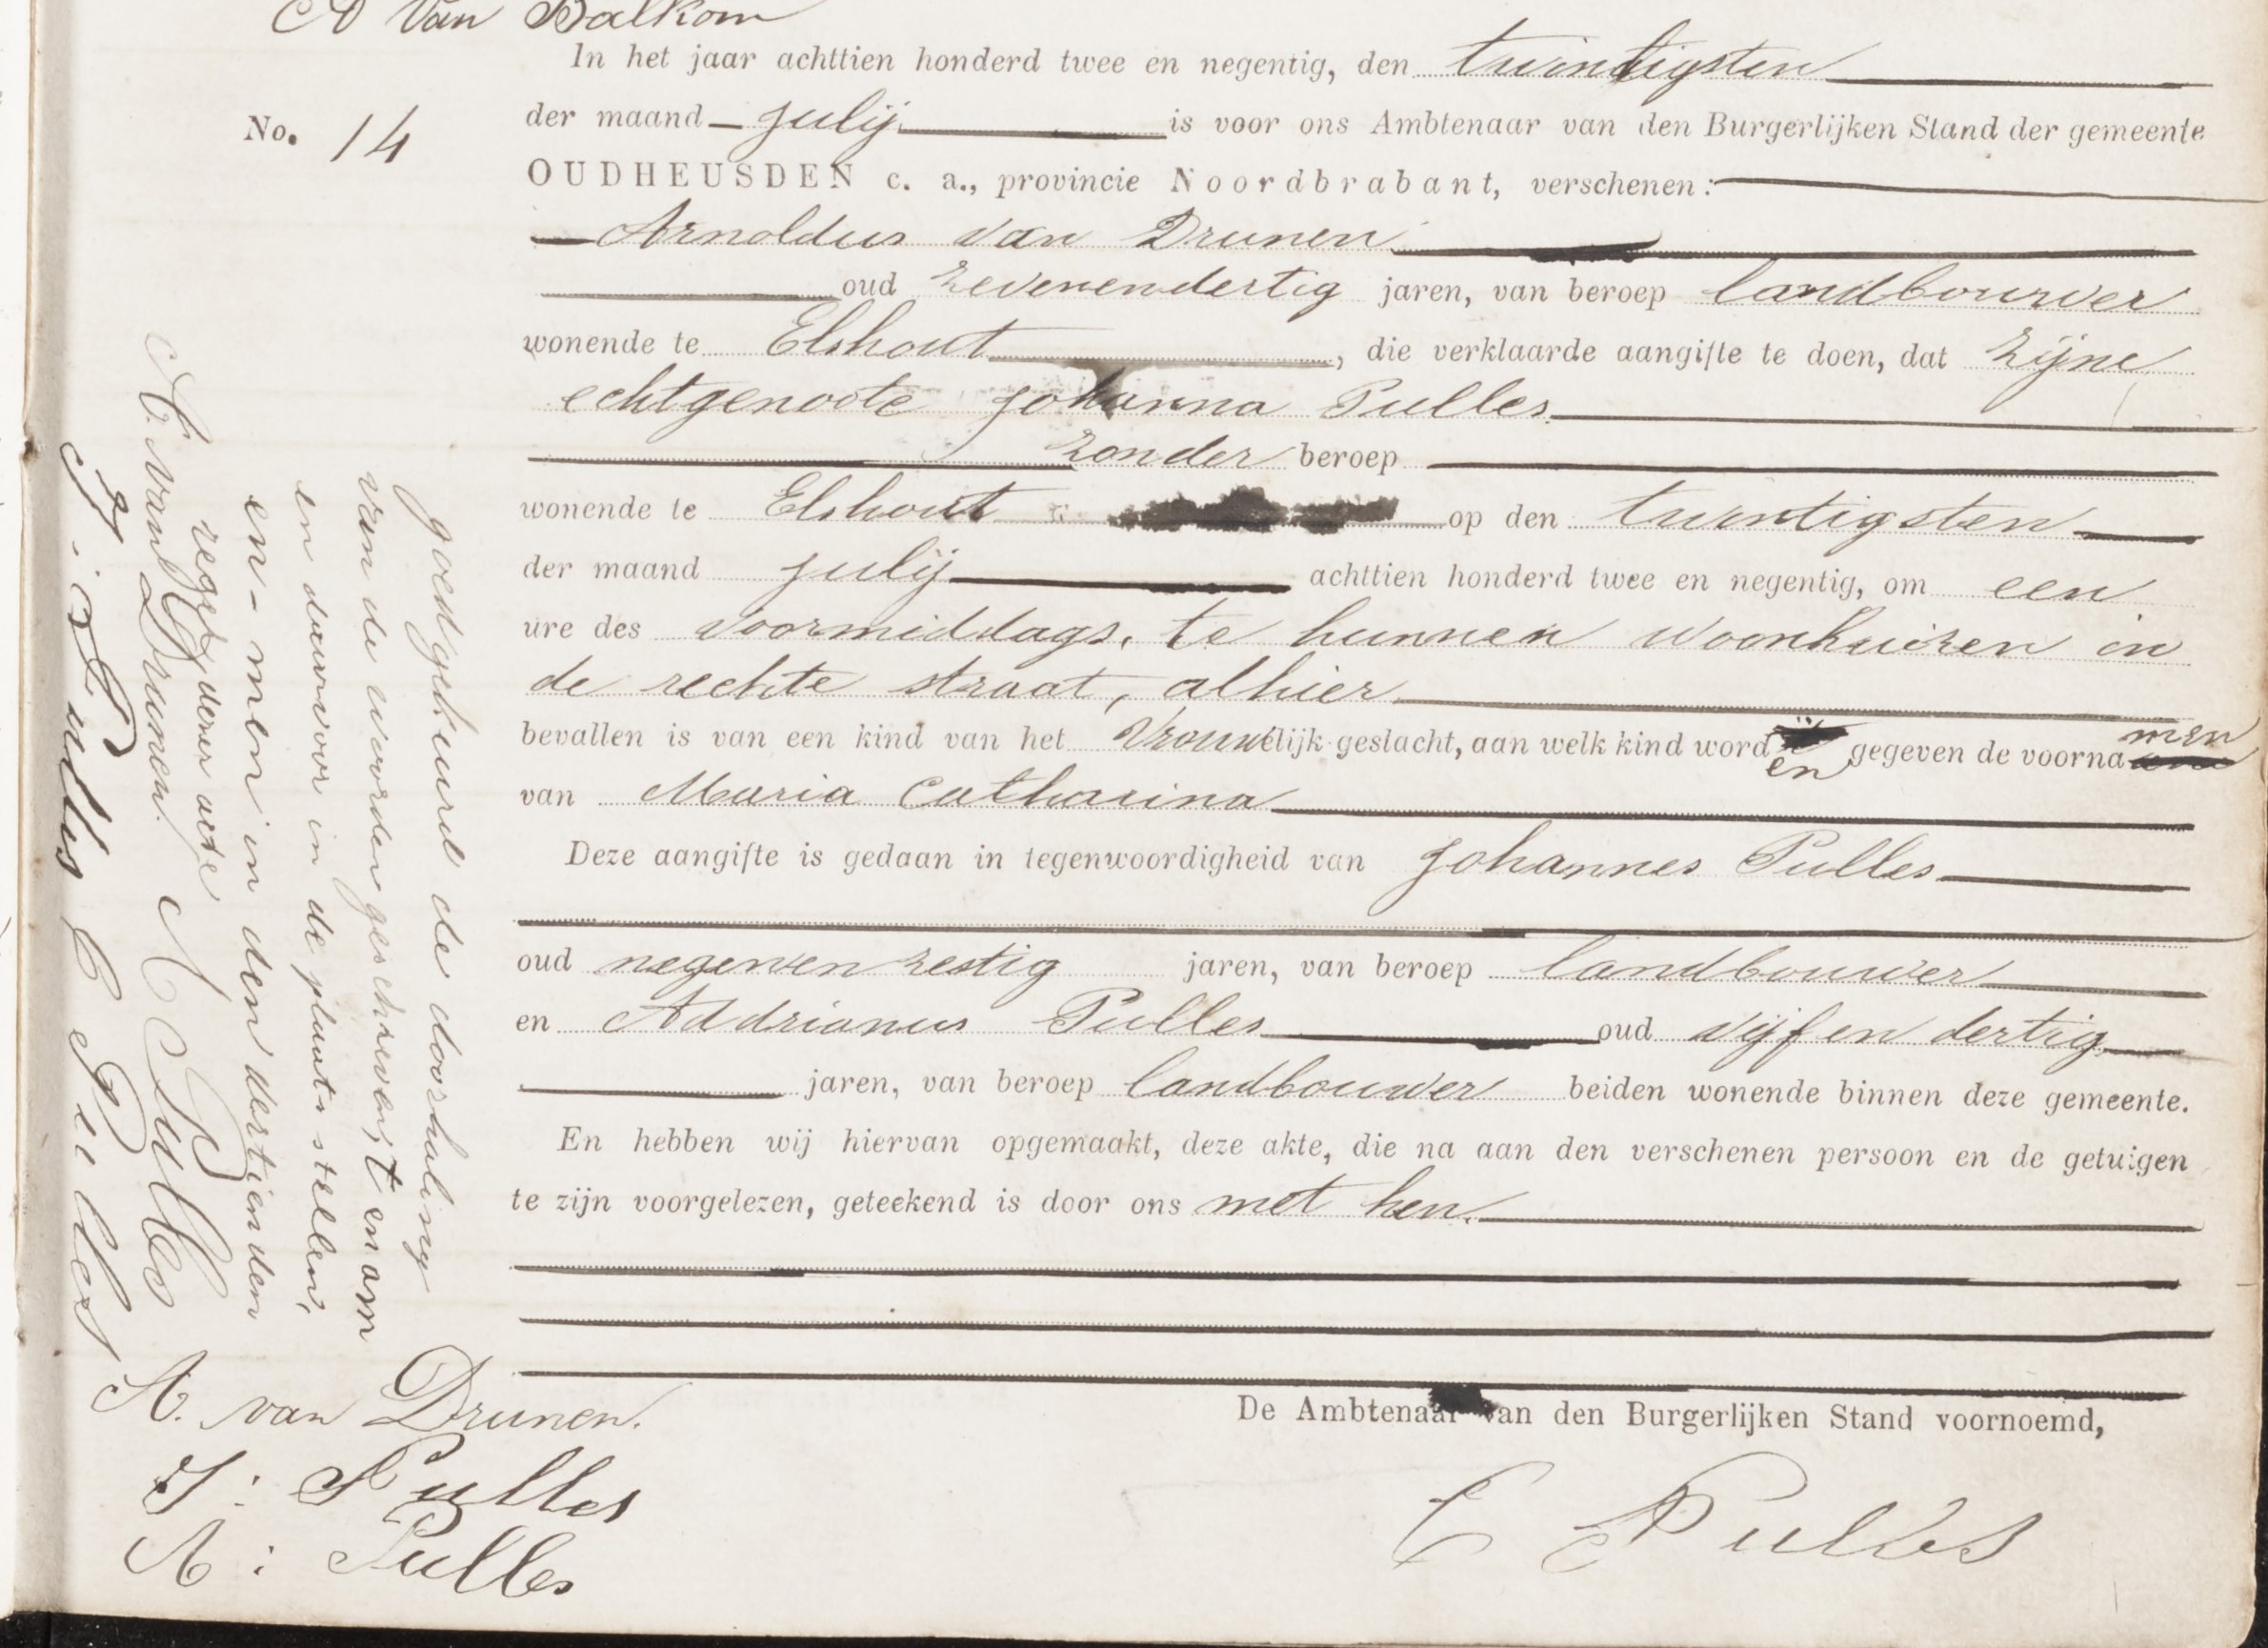 A van Balkom
In het jaar achttien honderd twee en negentig, den twintigsten
No. 14
der maand julij is voor ons Ambtenaar van den Burgerlijken Stand der gemeente
OUDHEUSDEN c. a., provincie Noordbrabant, verschenen:
Arnoldus van Drunen
oud zevenendertig jaren, van beroep landbouwer
wonende te Elshout, die verklaarde aangifte te doen, dat zijne
echtgenoote Johanna Pulles
zonder beroep
wonende te Elshout op den twintigsten
der maand julij achttien honderd twee en negentig, om een
ure des voormiddags, te hunnen woonhuizen in
de rechte straat, alhier
bevallen is van een kind van het vrouwelijk geslacht, aan welk kind worden gegeven de voornamen
van Maria Catharina
Deze aangifte is gedaan in tegenwoordigheid van Johannes Pulles
oud negenenzestig jaren, van beroep landbouwer
en Addrianus Pulles oud vijf en dertig
jaren, van beroep landbouwer beiden wonende binnen deze gemeente.
En hebben wij hiervan opgemaakt, deze akte, die na aan den verschenen persoon en de getuigen
te zijn voorgelezen, geteekend is door ons met hen.
De Ambtenaar van den Burgerlijken Stand voornoemd,
A. van Drunen.
J: Pulles
A: Pulles
C Pulles
goedgekeurd de doorhaling
van de woorden geschreven, t en am
en daarvoor in de plaats stellen,
en - men in den dertienden
regel dezer acte
A. van Drunen. A Pulles
J: Pulles C Pulles